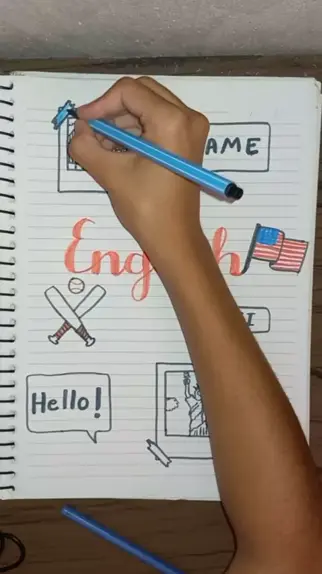 AME
English
Hello!